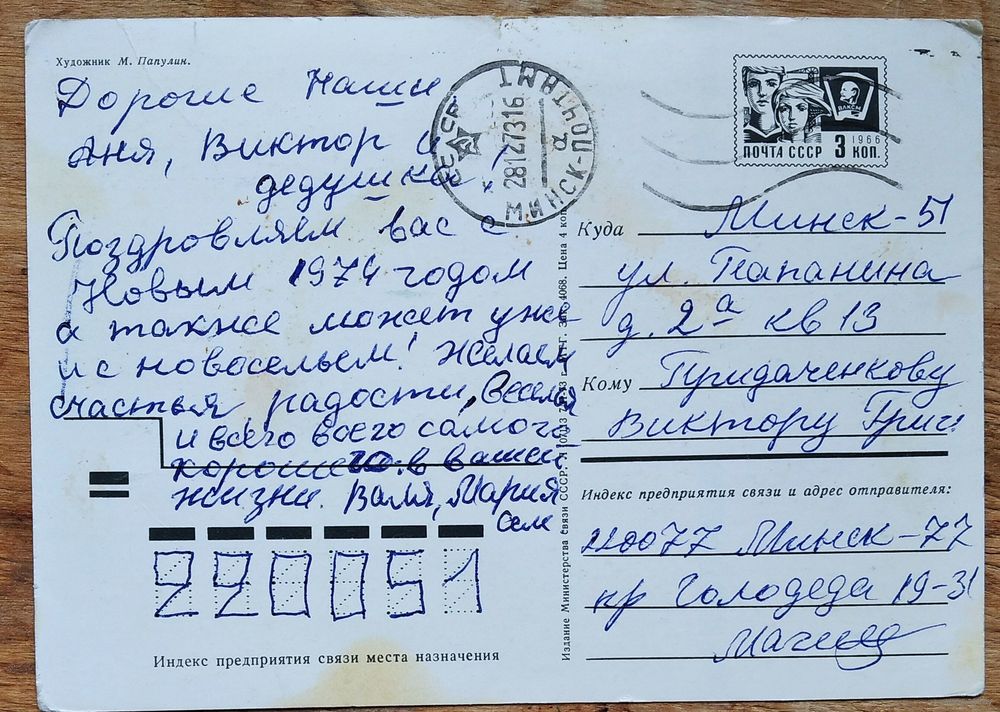 Художник М. Папулин.
Дорогие Наши
Аня, Виктор и
дедушка,
Поздровляем вас с
Новым 1974 годом
а также может уже
и с новосельем! Желаем
счастья, радости, Веселья
и всего всего самого
хорошего в вашей
жизни. Валя, Мария
220051
Индекс предприятия связи места назначения
СССР
МИНСК-ПОЧТАМТ
28127316
д
ВЛКСМ
1966
ПОЧТА СССР 3 КОП.
Издание Министерства связи СССР.
4068. Цена 4 коп.
Куда Минск-51
ул. Папанина
д. 2а кв 13
Кому
Виктору Григ
Индекс предприятия связи и адрес отправителя:
220077 Минск-77
пр Голодеда 19-31